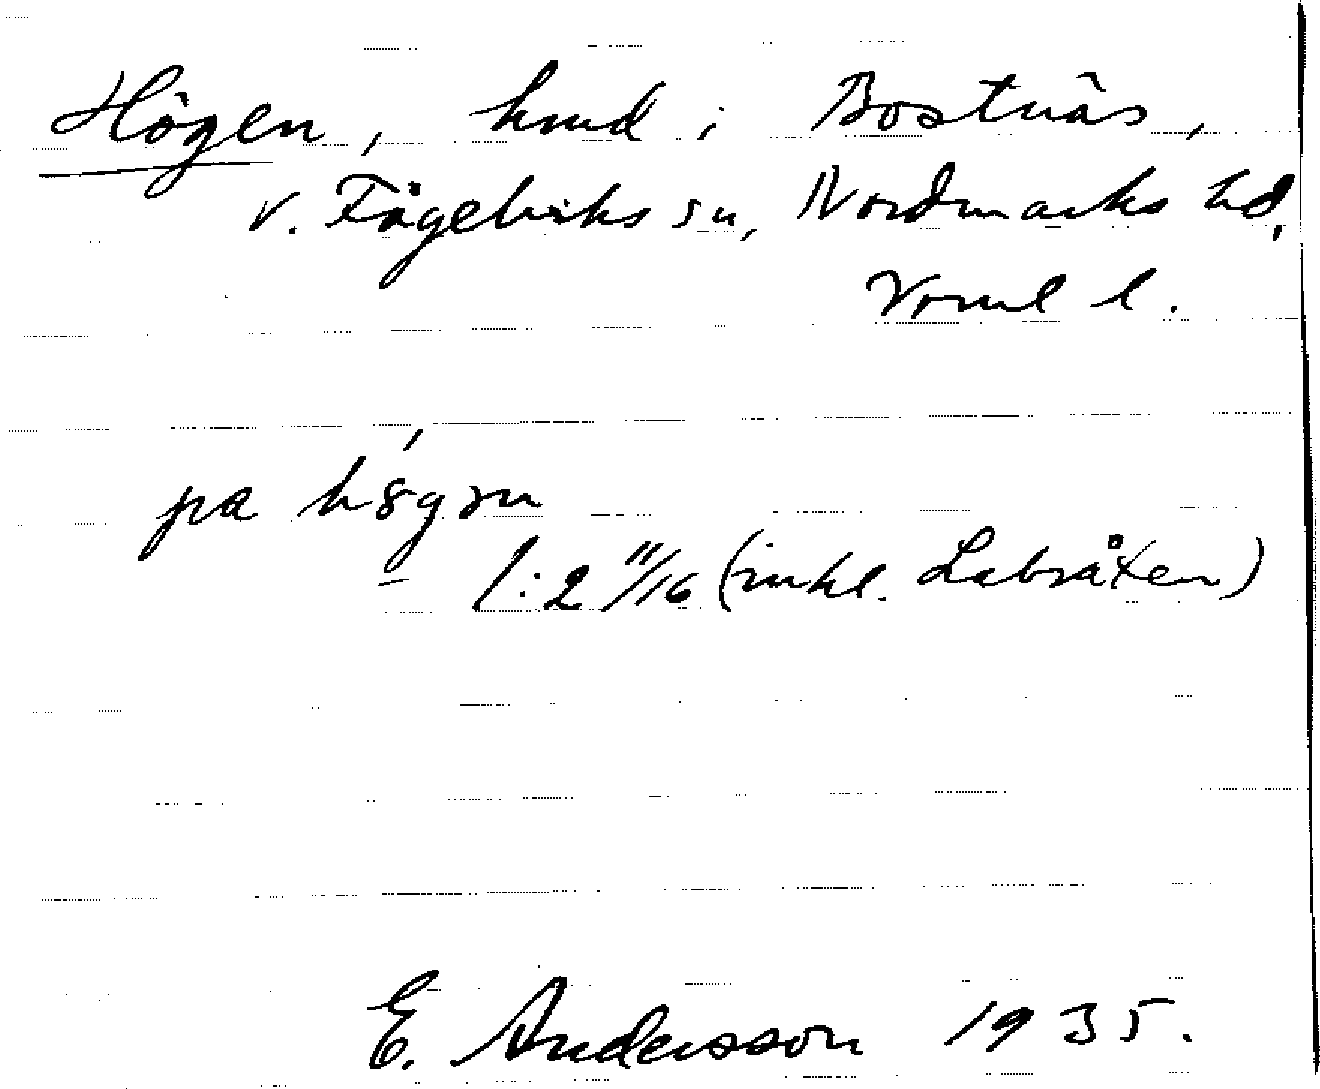 Högen, hmd i Bostnäs,
V. Fågelviks sn, Nordmarks hd,
Vrml l.
på högen
1:2 11/16 (inkl. Labråten)
E. Andersson 1935.